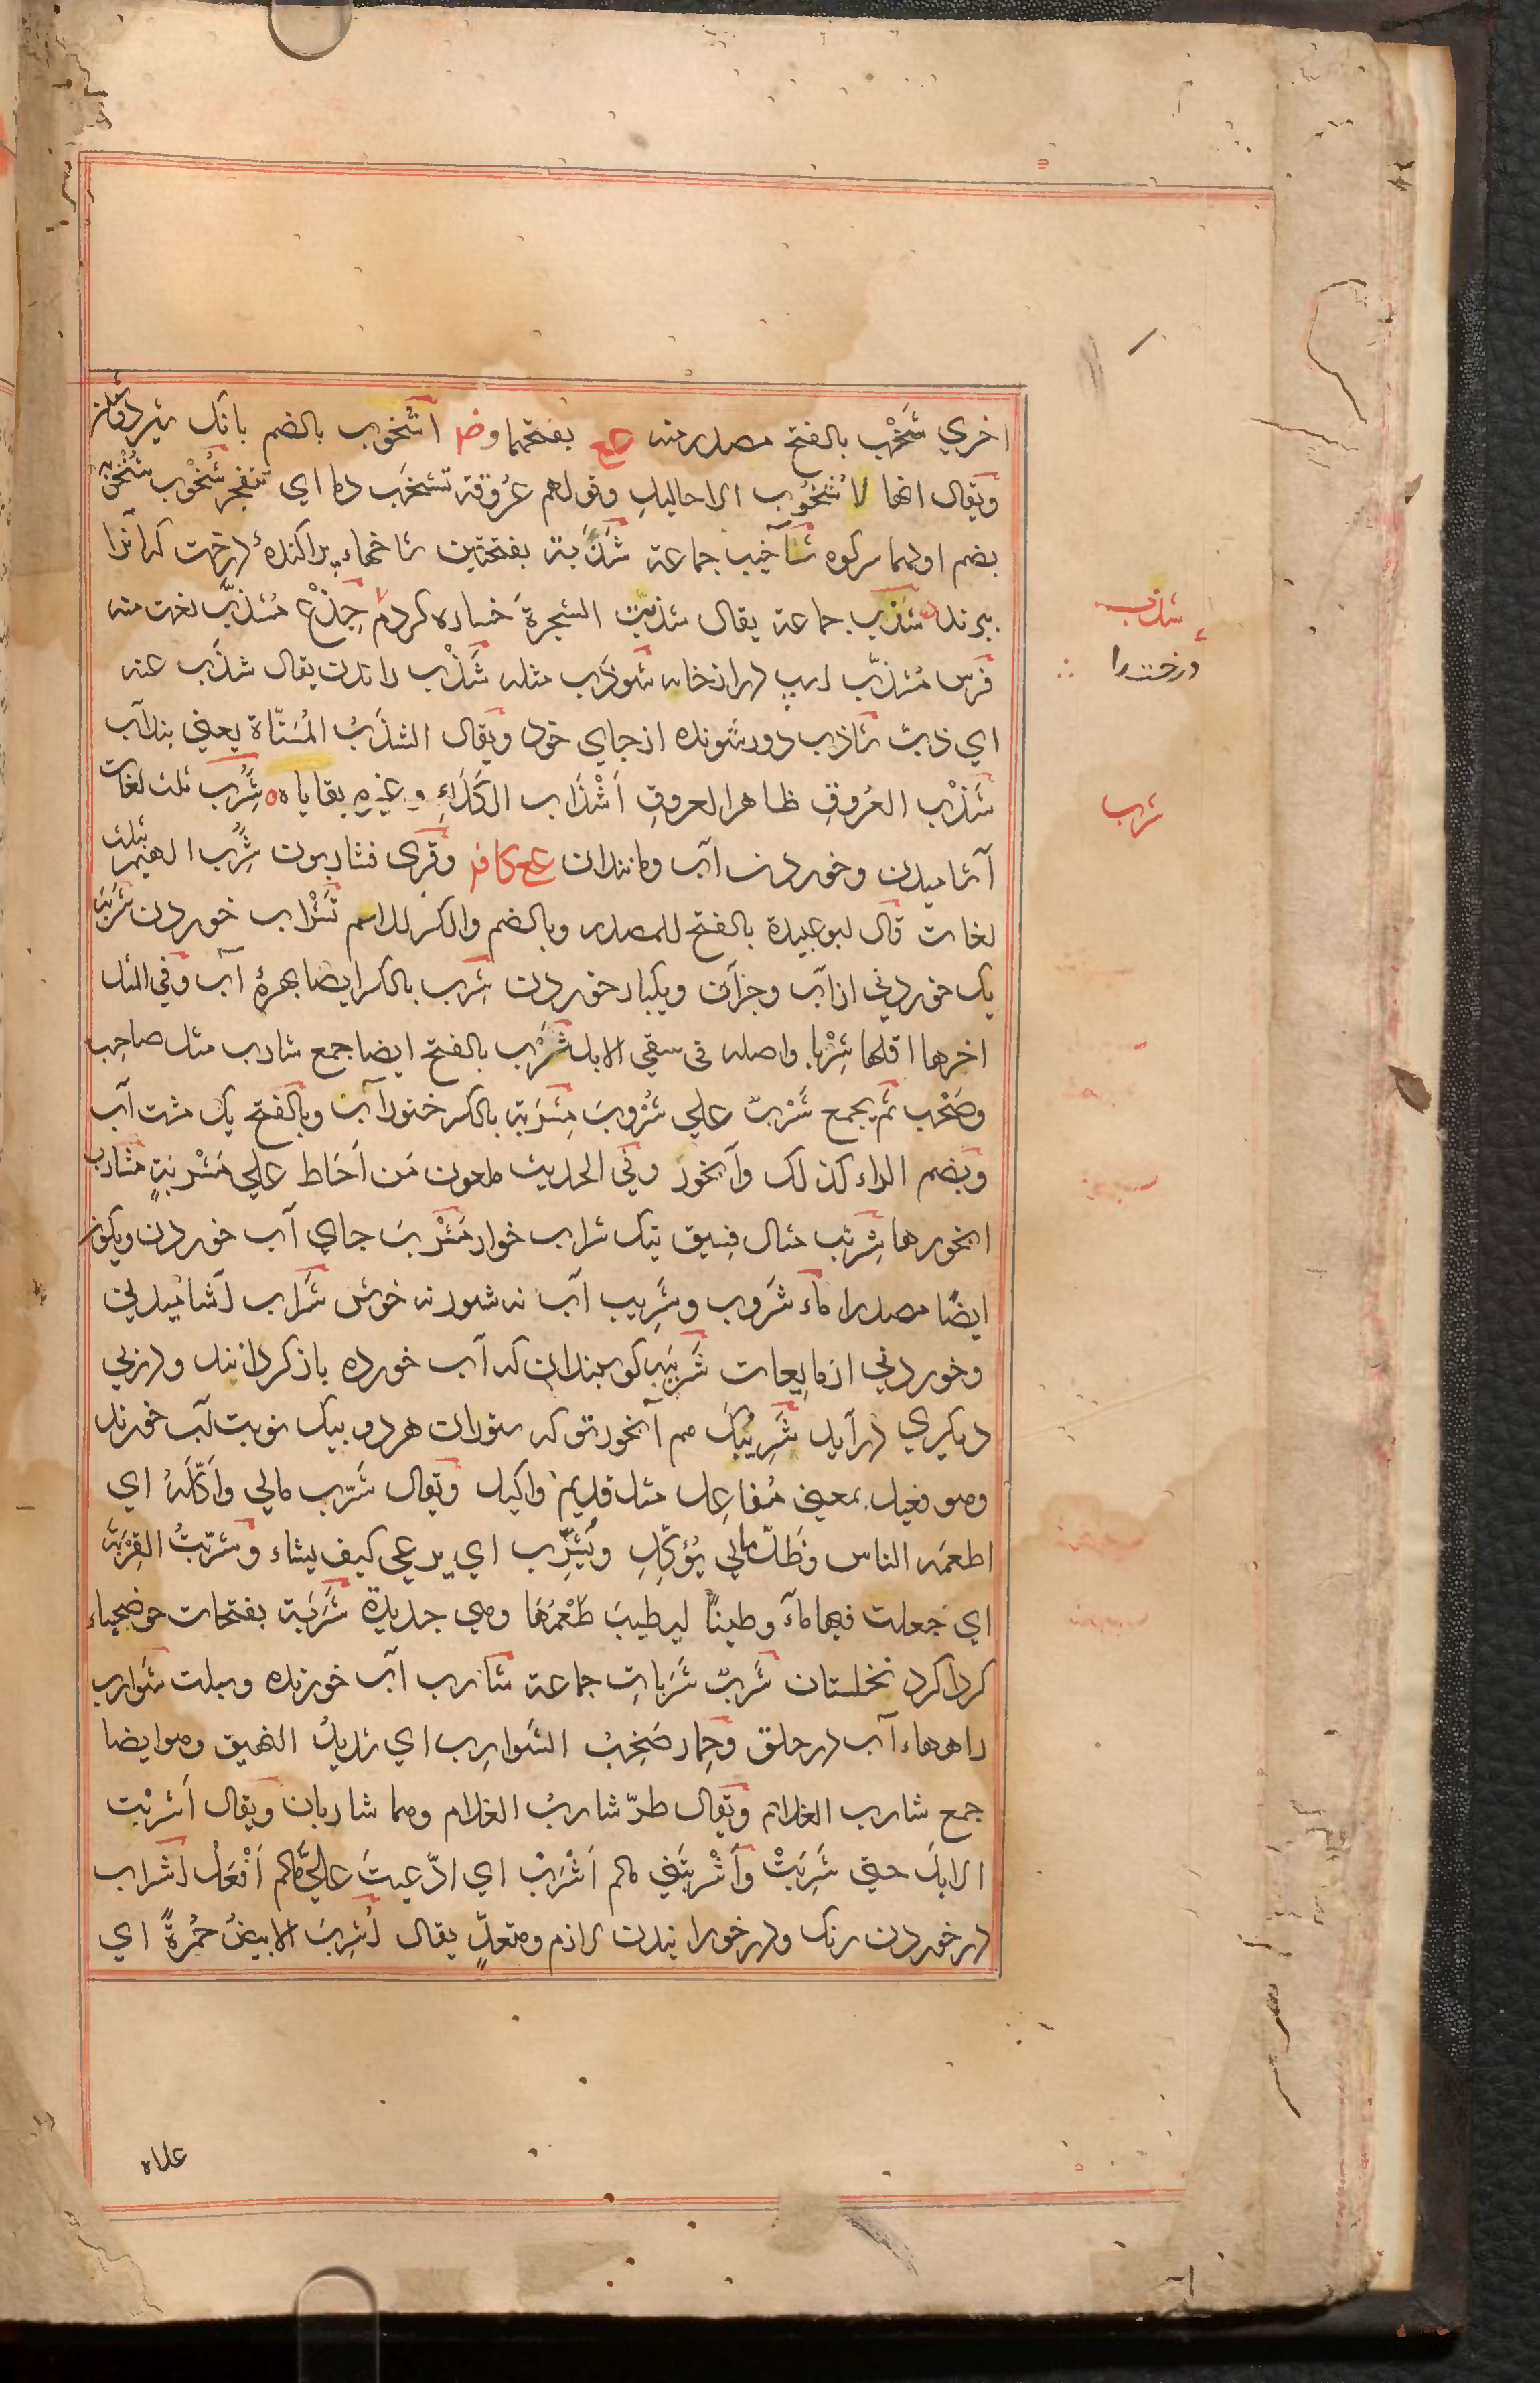 اخري شَخْب بالفتح مصدر منه عع بفتحهما وضم اشخوب بالضم بانک شیر دوشان
ويقال انها لاُشخُوب الاحاليلِ وقولهم عُروقه تشخَب دما اي تتفجر شُخْوب شُخْوبة
بضم اولهما سرکوه شَنَاخِيب جماعة شَذَبة بفتحتين شاخهاء پراکندۀ درخت که آنرا
ببرند شَذَب جماعة يقال شذّبتُ الشجرةَ خساره کردم جِذْع مُشذَّب نعت منه
فرس مُشذَّب اسپ دراز خانه شَوذَب مثله شَذْب راندن يقال شذَب عنه
اي ذبّ شاذب دور شونده از جاي خود ويقال الشذَبُ المُسَنّاة يعني بند آب
شَذْب العُروق ظاهر العروقِ اَشْذَاب الکَلَاءِ وغيره بقاياه شُِرَب ثلث لغات
آشاميدن وخوردن آب ومانند آن عع کافر وقري فشاربون شُِرَب الهيم بثلث
لغات قال ابو عبيدة بالفتح للمصدر وبالضم والکسر للاسم تَشْراب خوردن شَرْبَة
يک خوردني از آب وجز آن ويکبار خوردن شِرب بالکسر ايضا بهرۀ آب وفي المثل
اخرها اقلها شِرْبا واصله في سقي الابل شَرْب بالفتح ايضا جمع شارب مثل صاحب
وصَحْب ثم يجمع شَرْب علي شُرُوب مِشرَبة بالکسر خنور آب وبالفتح يک مشت آب
وبضم الراء کذلک وآبخور وفي الحديث ملعون مَن اَحَاط علي مَشْرَبةٍ مشارب
ابخورها شِرّيب مثال فِسيق نيک شراب خوار مَشْرَب جاي آب خوردن ويکون
ايضًا مصدرا ماء شَروب وشَرِيب آب نه شور نه خوش شَرَاب آشاميدني
وخوردني از مايعات شَرَبَة کوسبندان که آب خورده باز کردانند ودر پي
ديکري در آيد شَرِيبُک هم آبخور تو که ستوران هردو بيک نوبت آب خورند
وهو فعيل بمعني مُفاعِل مثل نديم واکيل ويقال شَرّب مالي واَکّلَهُ اي
اطعمه الناس وظَلّ مالي يُؤکِّل ويُشَرِّب اي يرعي کيف يشاء وشرّبتُ القِرْبَةَ
اي جعلت فيها ماء وطينًا ليطيبَ طَعْمُها وهي جديدة شَرَبة بفتحات حوضچهاء
کرداکرد نخلستان شَرَبّ شَرَبات جماعة شارب آب خورنده وسبلت شوارب
راهرهاء آب در حلق وحِمار صَخِبُ الشَوارِب اي شديدُ النهيق وهو ايضا
جمع شارب الغلام ويقال طرّ شاربُ الغلام وهما شاربان ويقال اَشْرَبْتُ
الابلَ حتي شَرِبَتْ واَشْرَبْتَنِي مالم اَشْرَبْ اي ادّعيتَ عليّ مالم اَفْعَلْ اِشْراب
در خوردن رنک ودر خورانيدن لازم ومتعدٍّ يقال اُشْرِبَ الابيضُ حُمْرةً اي
شذب
درخت را
شرب
علاه